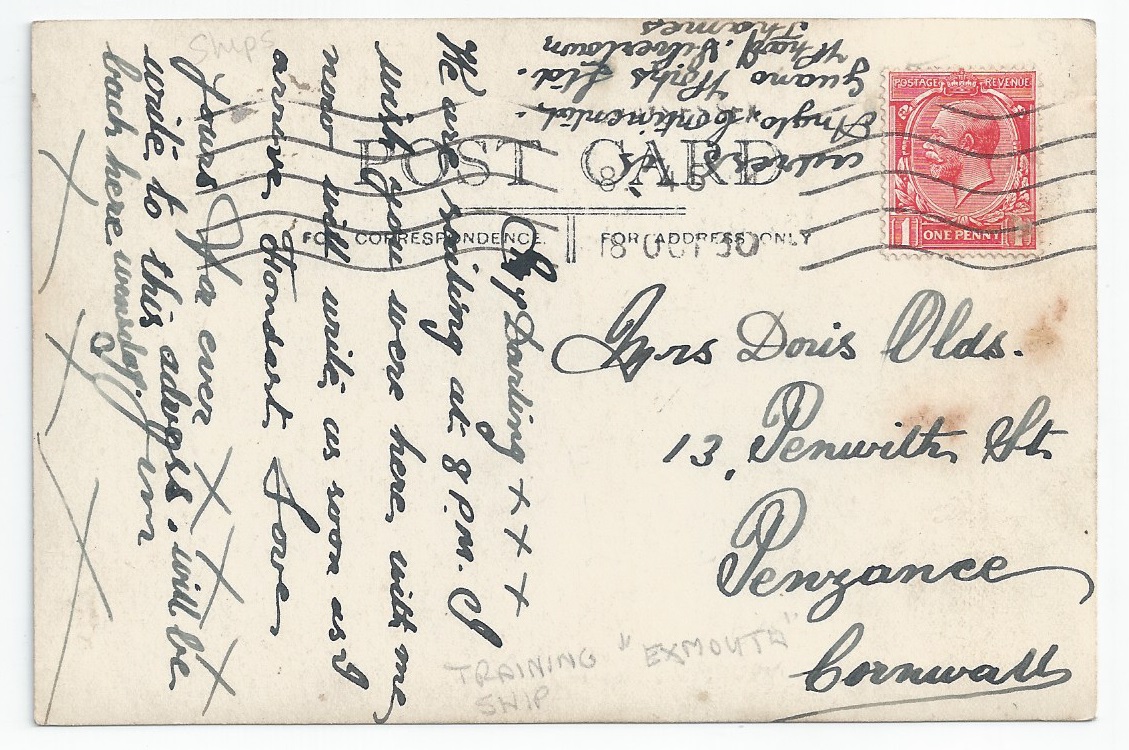 POST CARD
FOR CORRESPONDENCE.
FOR ADDRESS ONLY
POSTAGE REVENUE
1 ONE PENNY 1
8.45
18 OCT 30
Mrs Doris Olds.
13, Penwith St
Penzance
Cornwall
My Darling x x x
We are sailing at 8 P.M. I
wish you were here with me
now will write as soon as I
arrive Fondest Love
Yours For ever
Jim
write to this adress. will be
back here
adress
Anglo, Continential,
Guano Works Ltd.
Wharf. Silvertown
Thames
Ships
TRAINING "EXMOUTH"
SHIP